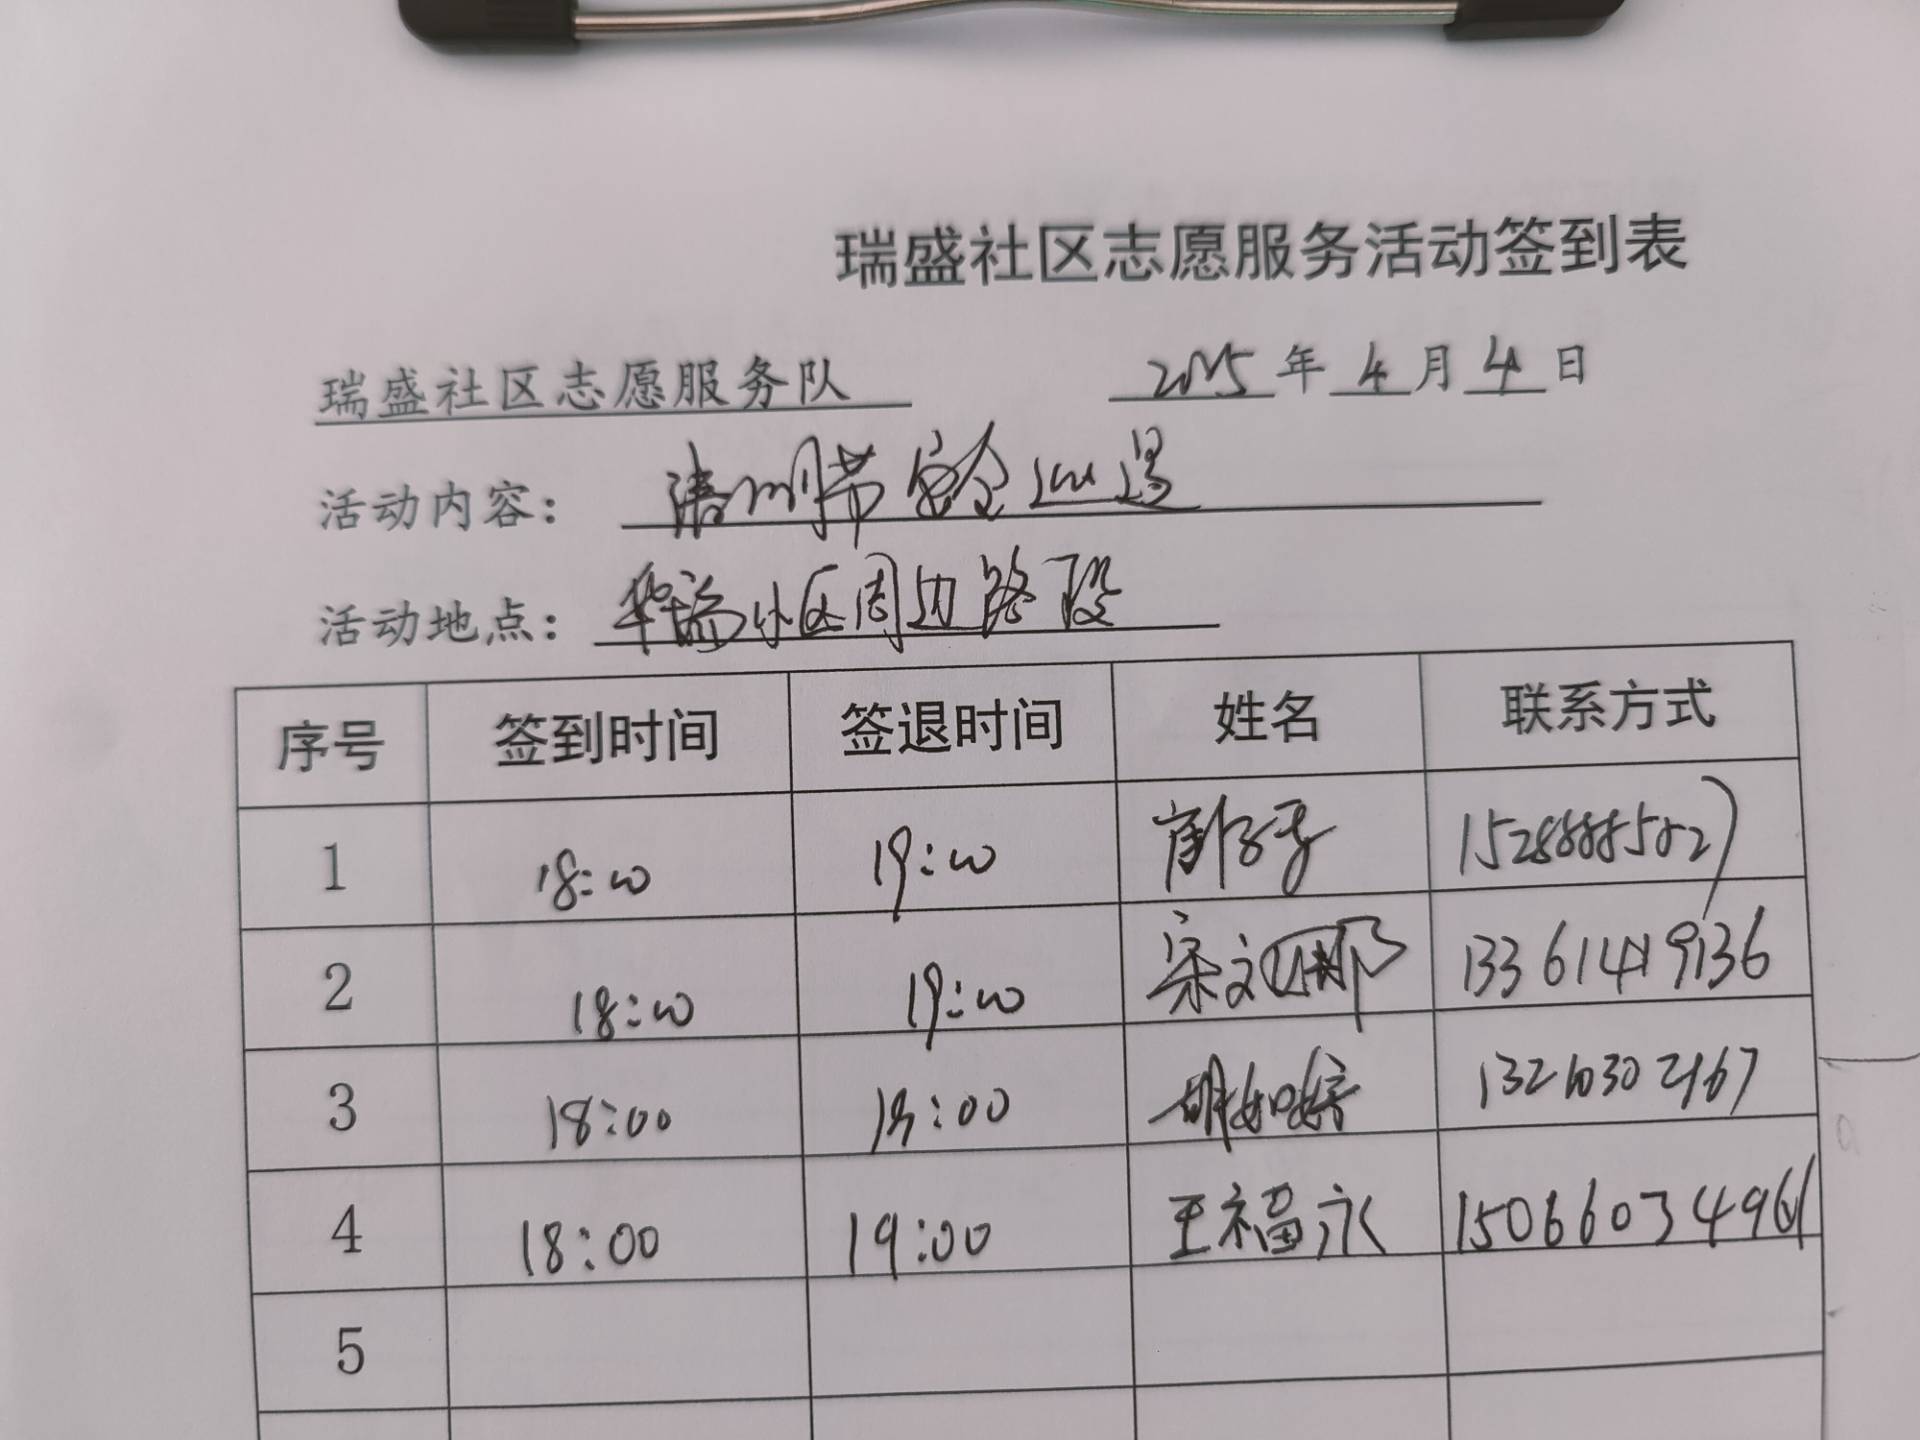 瑞盛社区志愿服务活动签到表
瑞盛社区志愿服务队 2025年4月4日
活动内容: 清明节安全巡逻
活动地点: 华瑞小区周边路段
序号 签到时间 签退时间 姓名 联系方式
1 18:00 19:00 15288885827
2 18:00 19:00 宋文娜 13361419136
3 18:00 19:00 胡如婷 13210302167
4 18:00 19:00 王福永 15066034961
5